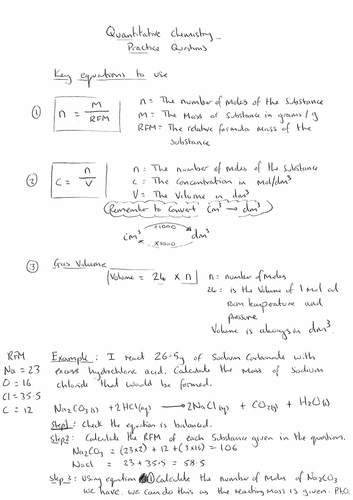 Quantitative Chemistry
Practice Questions
Key equations to use
① n = M / RFM
n = The number of moles of the Substance
M = The Mass of Substance in grams / g
RFM = The relative formula mass of the Substance
② C = n / V
n = The number of moles of the Substance
C = The Concentration in mol/dm³
V = The Volume in dm³
Remember to Convert cm³ → dm³
÷1000
cm³ dm³
×1000
③ Gas Volume
Volume = 24 × n
n = number of moles
24 = is the Volume of 1 mol at
room temperature and
pressure
Volume is always in dm³.
RFM
Na = 23
O = 16
Cl = 35.5
C = 12
Example: I react 26.5g of Sodium Carbonate with
excess hydrochloric acid. Calculate the Mass of Sodium
chloride that would be formed.
Na₂CO₃(s) + 2HCl(aq) → 2NaCl(aq) + CO₂(g) + H₂O(l)
Step1: Check the equation is balanced.
Step2: Calculate the RFM of each Substance given in the questions.
Na₂CO₃ = (23×2) + 12 + (3×16) = 106
NaCl = 23 + 35.5 = 58.5
Step 3: Using equation ① Calculate the number of moles of Na₂CO₃
we have. We can do this as the reacting Mass is given. PTO.